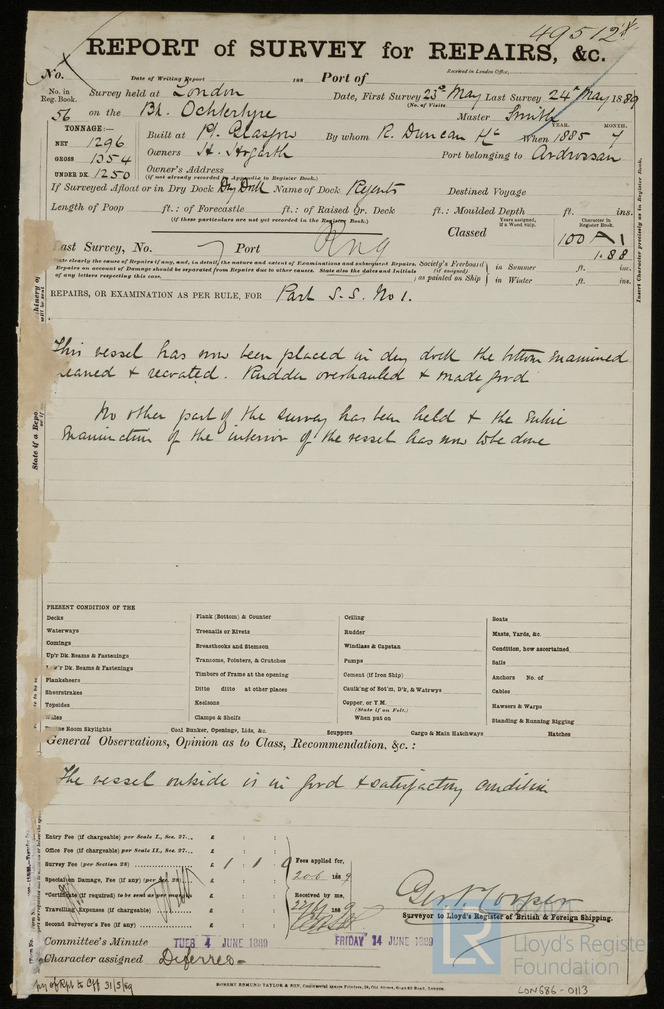 49512
REPORT of SURVEY for REPAIRS, &c.
No. Date of Writing Report 188 Port of Received in London Office,
No. in Reg. Book. Survey held at London Date, First Survey 23rd May Last Survey 24th May 1889
(No. of Visits
56 on the Bk. Ochtertyre Master Smith
TONNAGE:— YEAR. MONTH.
NET 1296 Built at Pt. Glasgow By whom R. Duncan & Co When 1885 7
GROSS 1354 Owners H. Hogarth Port belonging to Ardrossan
UNDER DK. 1250 Owner's Address
(if not already recorded in Appendix to Register Book.)
If Surveyed Afloat or in Dry Dock Dry Dock Name of Dock Regents Destined Voyage
Length of Poop ft.: of Forecastle ft.: of Raised Qr. Deck ft.: Moulded Depth ft. ins.
(if these particulars are not yet recorded in the Register Book.)
Years assigned, if a Wood Ship. Character in Register Book.
Classed 100 A 1
1.88
Last Survey, No. Port
State clearly the cause of Repairs if any, and, in detail, the nature and extent of Examinations and subsequent Repairs.
Repairs on account of Damage should be separated from Repairs due to other causes. State also the dates and initials
of any letters respecting this case.
Society's Freeboard (if assigned) as painted on Ship in Summer ft. ins.
in Winter ft. ins.
Insert Character precisely as in Register Book.
REPAIRS, OR EXAMINATION AS PER RULE, FOR Part S.S. No 1.
This vessel has now been placed in dry dock the bottom examined
cleaned & recoated. Rudder overhauled & made good
No other part of the survey has been held & the entire
examination of the interior of the vessel has now to be done
State if a Repo
PRESENT CONDITION OF THE
Decks
Waterways
Comings
Up'r Dk. Beams & Fastenings
Low'r Dk. Beams & Fastenings
Planksheers
Sheerstrakes
Topsides
Wales
Engine Room Skylights
Plank (Bottom) & Counter
Treenails or Rivets
Breasthooks and Stemson
Transoms, Pointers, & Crutches
Timbers of Frame at the opening
Ditto ditto at other places
Keelsons
Clamps & Shelfs
Coal Bunker, Openings, Lids, &c.
Ceiling
Rudder
Windlass & Capstan
Pumps
Cement (if Iron Ship)
Caulk'ng of Bot'm, D'k, & Watrwys
Copper, or Y.M.
(State if on Felt.)
When put on
Scuppers
Boats
Masts, Yards, &c.
Condition, how ascertained
Sails
Anchors No. of
Cables
Hawsers & Warps
Standing & Running Rigging
Cargo & Main Hatchways Hatches
General Observations, Opinion as to Class, Recommendation, &c. :
The vessel outside is in good & satisfactory condition
Entry Fee (if chargeable) per Scale I., Sec. 27... £ : :
Office Fee (if chargeable) per Scale II., Sec. 27... £ : :
Survey Fee (per Section 28) £ 1 : 1 : 0
Special on Damage, Fee (if any) (per Sec. 28) £ : :
*Certificate (if required) to be sent as per margin £ : :
Travelling Expenses (if chargeable) £ : :
Second Surveyor's Fee (if any) £ : :
Fees applied for,
20.6 1889
Received by me,
1889
Surveyor to Lloyd's Register of British & Foreign Shipping.
Committee's Minute TUES 4 JUNE 1889 FRIDAY 14 JUNE 1889
Character assigned Deferred
31/5/89
ROBERT EDMUND TAYLOR & SON,
LR
Lloyd's Register
Foundation
LON686-0113